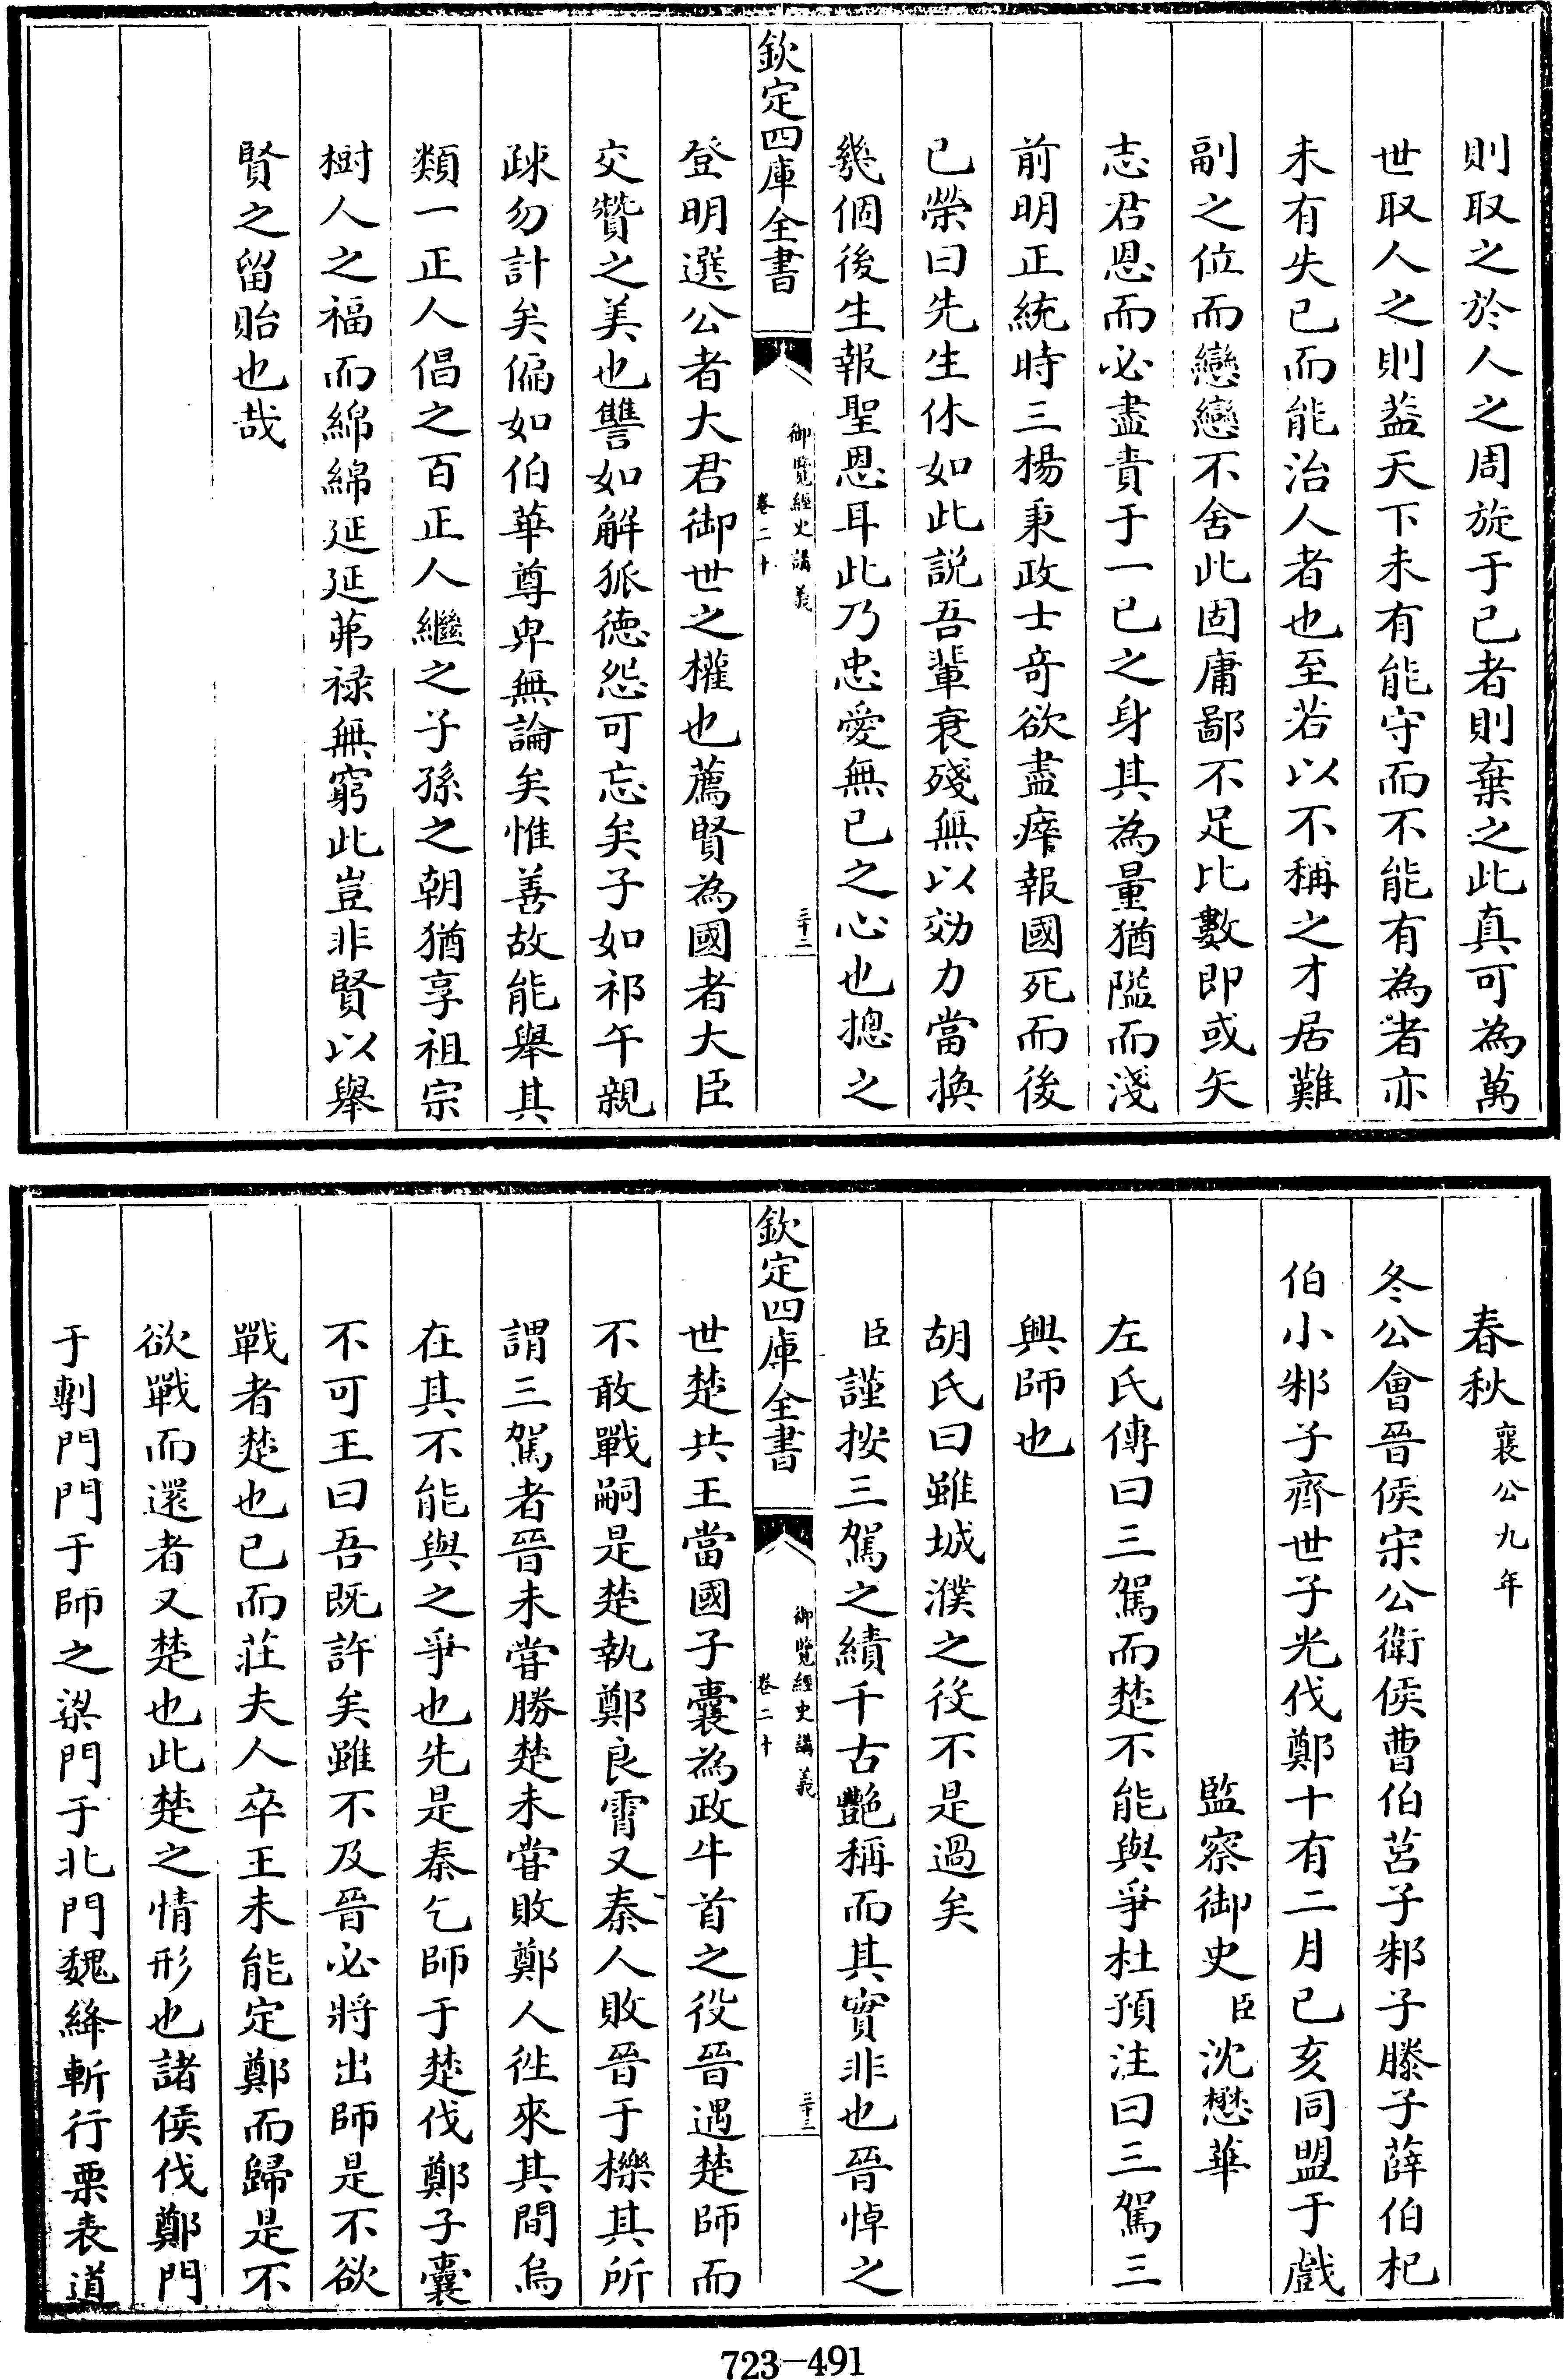 則取之於人之周旋于已者則棄之此真可為萬
世取人之則葢天下未有能守而不能有為者亦
未有失已而能治人者也至若以不稱之才居難
副之位而戀戀不舍此固庸鄙不足比數即或矢
志君恩而必盡責于一已之身其為量猶隘而淺
前明正統時三楊秉政士奇欲盡瘁報國死而後
已榮曰先生休如此説吾輩衰殘無以効力當換
幾個後生報聖恩耳此乃忠愛無已之心也摠之
欽定四庫全書
御覽經史講義
卷二十
三十二
登明選公者大君御世之權也薦賢為國者大臣
交贊之美也讐如解狐德怨可忘矣子如祁午親
疎勿計矣偏如伯華尊卑無論矣惟善故能舉其
類一正人倡之百正人繼之子孫之朝猶享祖宗
樹人之福而綿綿延延茀禄無窮此豈非賢以舉
賢之留貽也哉
春秋襄公九年
冬公會晉侯宋公衛侯曹伯莒子邾子滕子薛伯杞
伯小邾子齊世子光伐鄭十有二月己亥同盟于戲
監察御史臣沈懋華
左氏傳曰三駕而楚不能與爭杜預注曰三駕三
興師也
胡氏曰雖城濮之役不是過矣
臣謹按三駕之績千古艷稱而其實非也晉悼之
欽定四庫全書
御覽經史講義
卷二十
三十三
世楚共王當國子囊為政牛首之役晉遇楚師而
不敢戰嗣是楚執鄭良霄又秦人敗晉于櫟其所
謂三駕者晉未嘗勝楚未嘗敗鄭人徃來其間烏
在其不能與之爭也先是秦乞師于楚伐鄭子囊
不可王曰吾既許矣雖不及晉必將出師是不欲
戰者楚也已而莊夫人卒王未能定鄭而歸是不
欲戰而還者又楚也此楚之情形也諸侯伐鄭門
于鄟門門于師之梁門于北門魏絳斬行栗表道
723-491